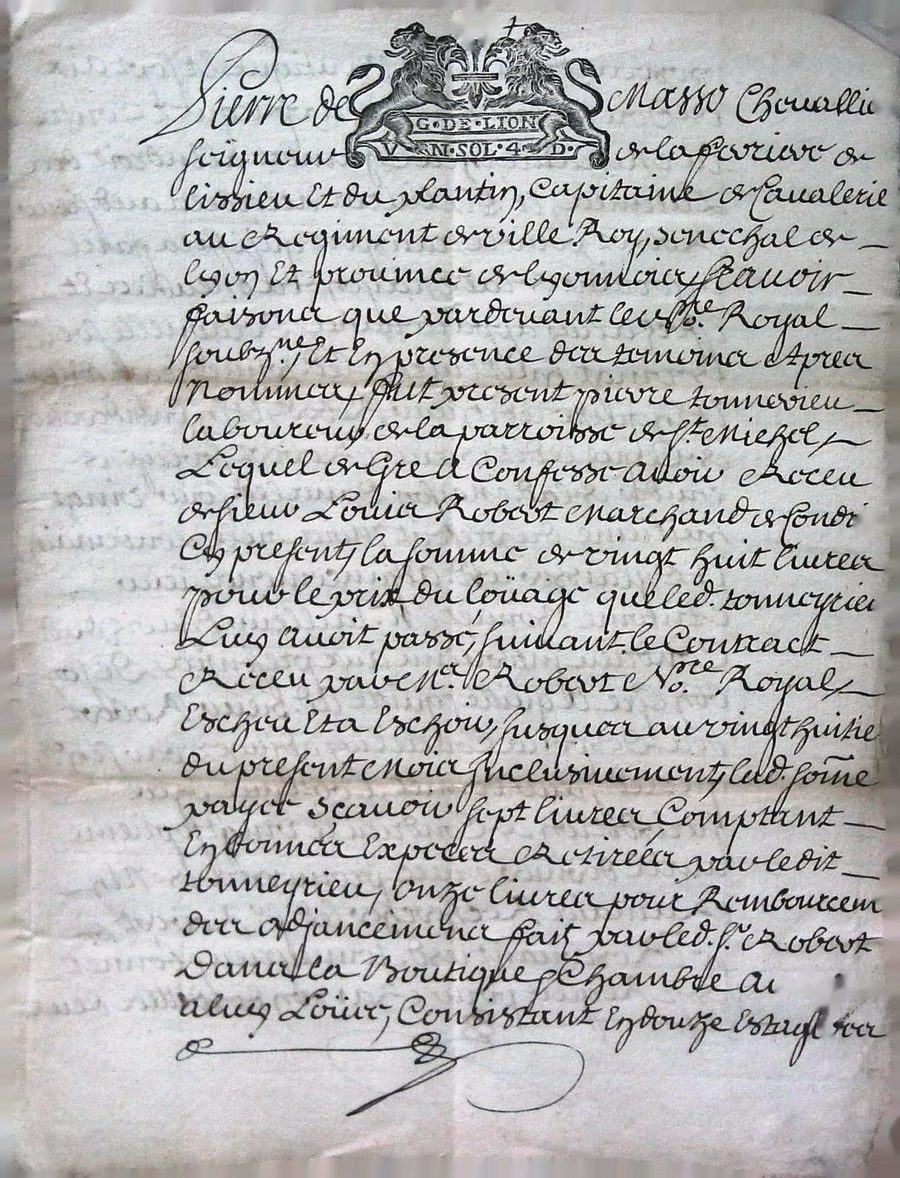 Pierre de Masso Chevallie
G·DE·LION
V N·SOL·4 D·
seigneur de la ferriere de
Lissieu Et du plantin, Capitaine de Cavalerie
au Regiment de ville Roy, senechal de
lyon Et province de lyonnois, sçavoir
faisons que pardevant le No.re Royal
soubz.ne, Et En presence des temoins apres
Nommes, fut present pierre tonneyrieu
laboureur de la parroisse de St Michel
Lequel de Gre a Confesse avoir Receu
de sieur Louis Robert Marchand de Condri
Cy present, la somme de vingt huit livres
pour le prix du loüage que led. tonneyrieu
Luy avoit passé, suivant le Contract
Receu par Me. Robert No.re Royal
Escheu Et a Eschoir, jusques au vingt huitie
du present Mois Inclusivement, lad. some
payee sçavoir sept livres Comptant
En Especes Retirées par ledit
tonneyrieu, onze livres pour Rembourcem
des adjancemens fait par led. Sr. Robert
Dans la Boutique, Chambre a
aluy Loüée, Consistant En douze Estag des